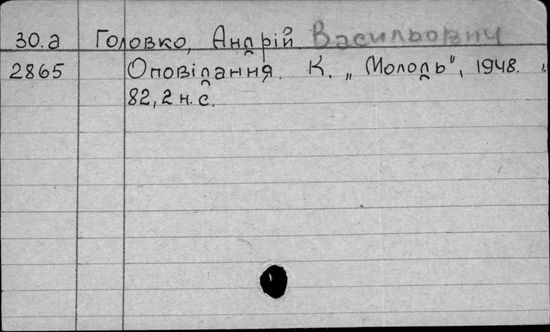 30.а Головко, Андрій Васильович
2865 Оповідання. К. „Молодь", 1948.
82, 2 н. с.